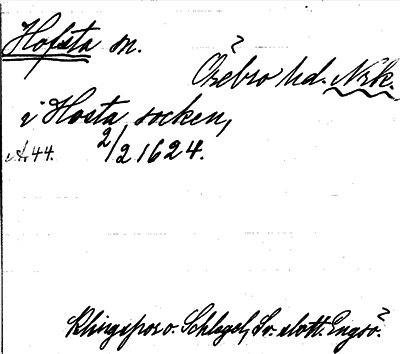 Hofsta sn.
Örebro hd. Nrk.
i Hosta socken,
A:44. 2/2 1624.
Klingspor o. Schlegel, Sv. slott. Engsö.